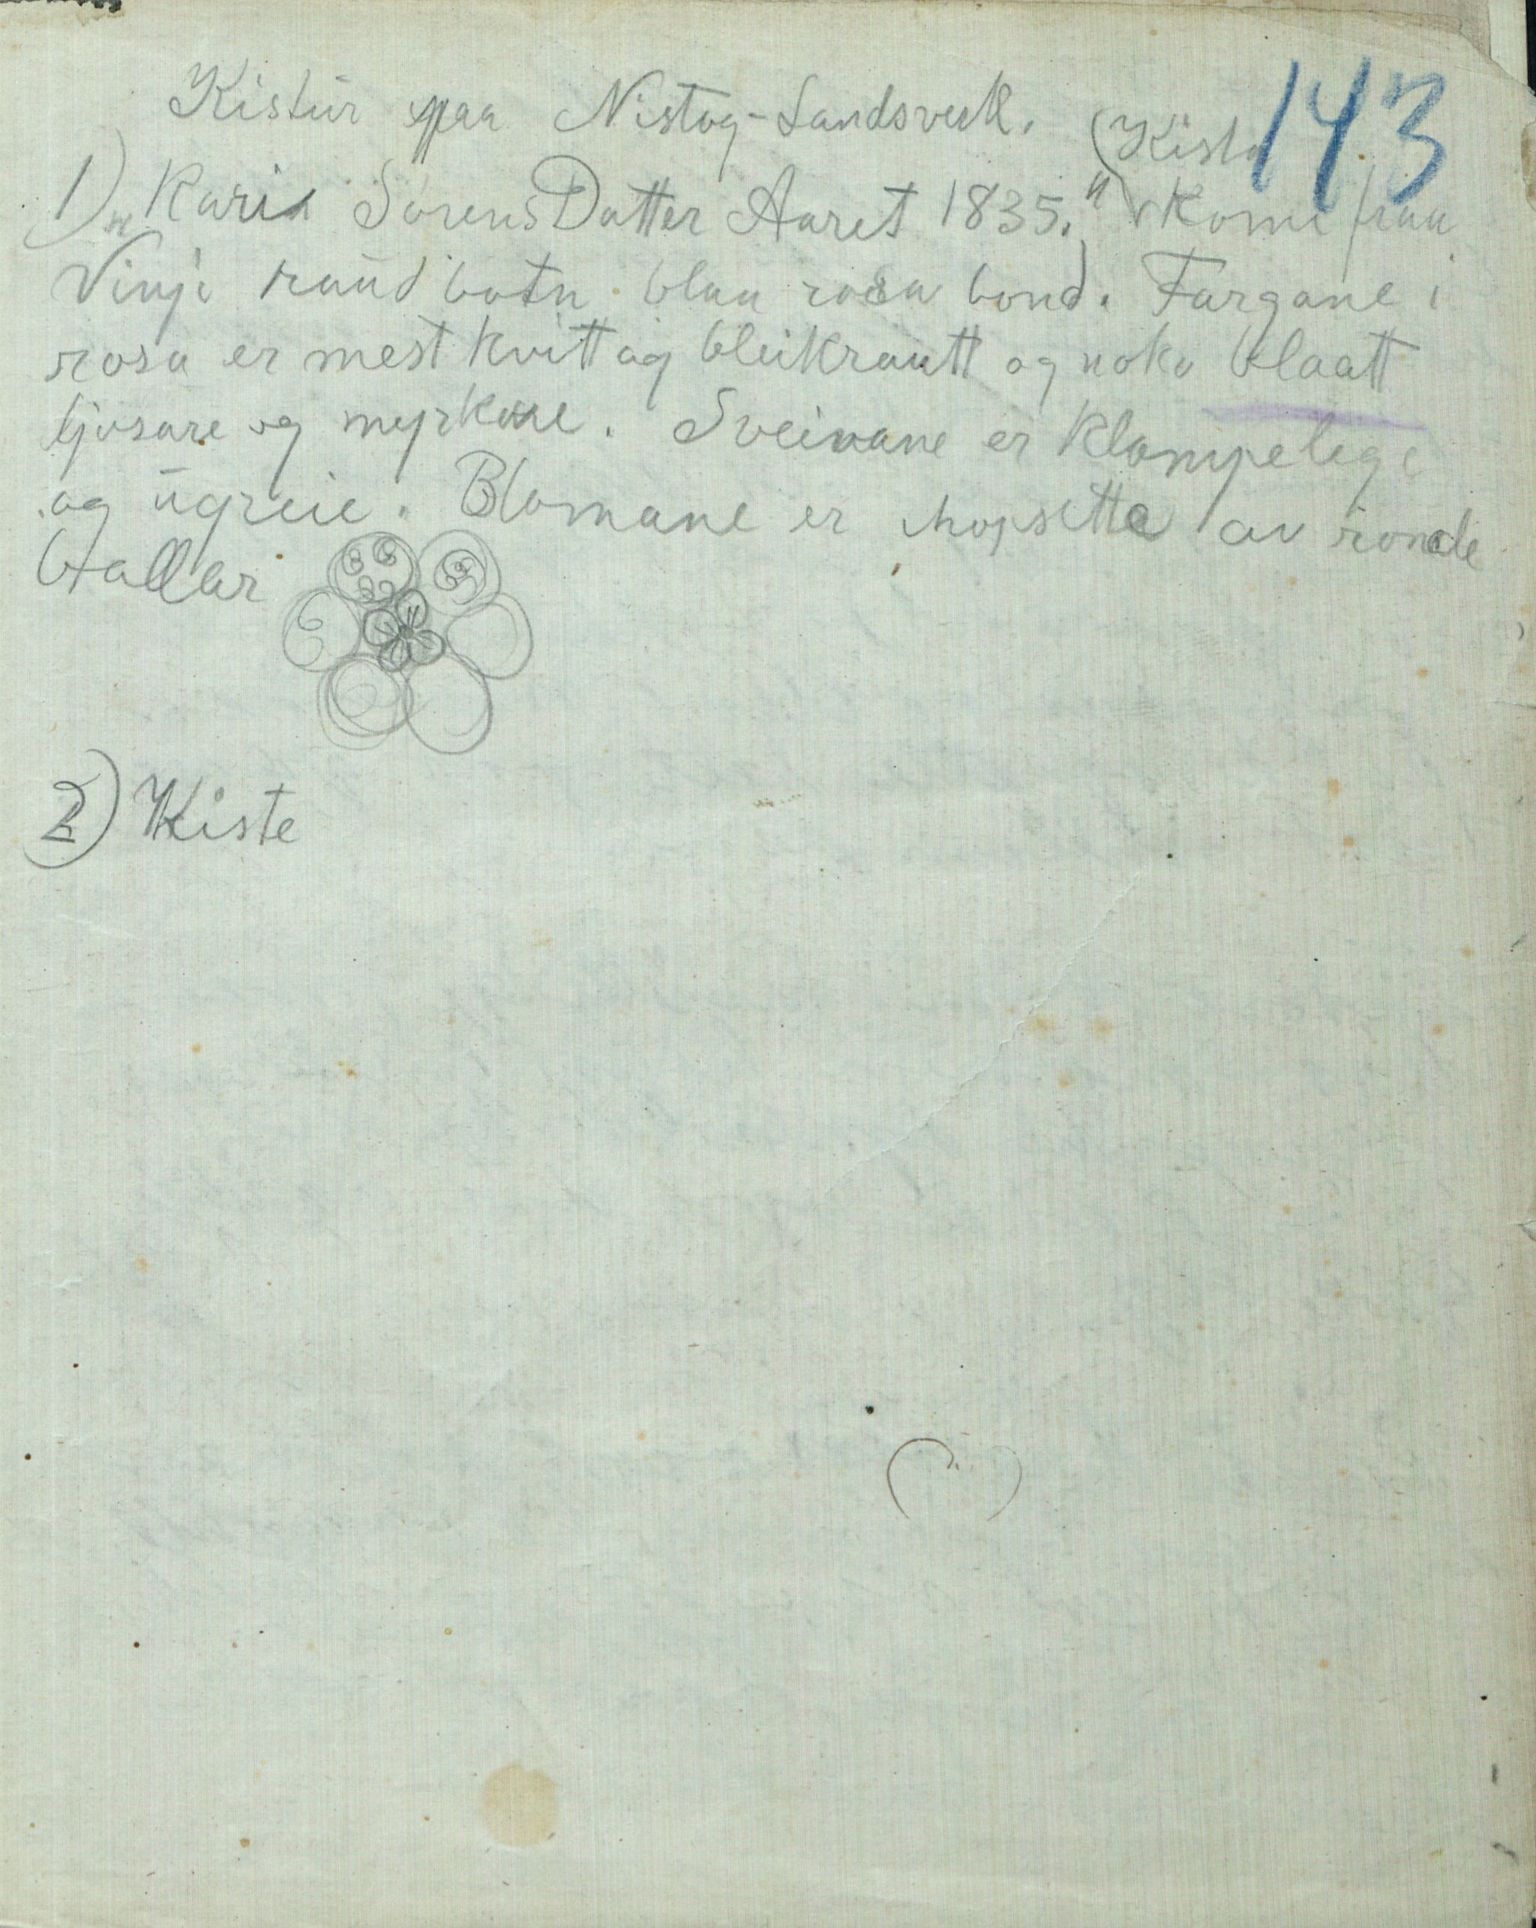 143
Kistur paa Nistog-Landsverk.
1) "Kari Sørens Datter Aaret 1835." (Kista kome fraa
Vinje) raud botn blaa rosa bond. Fargane i
rosa er mest kvitt og bleikrautt og noko blaatt
ljosare og myrkare. Sveivane er klompelege
og ugreie. Blomane er ihopsette av runde
ballar
2) Kiste